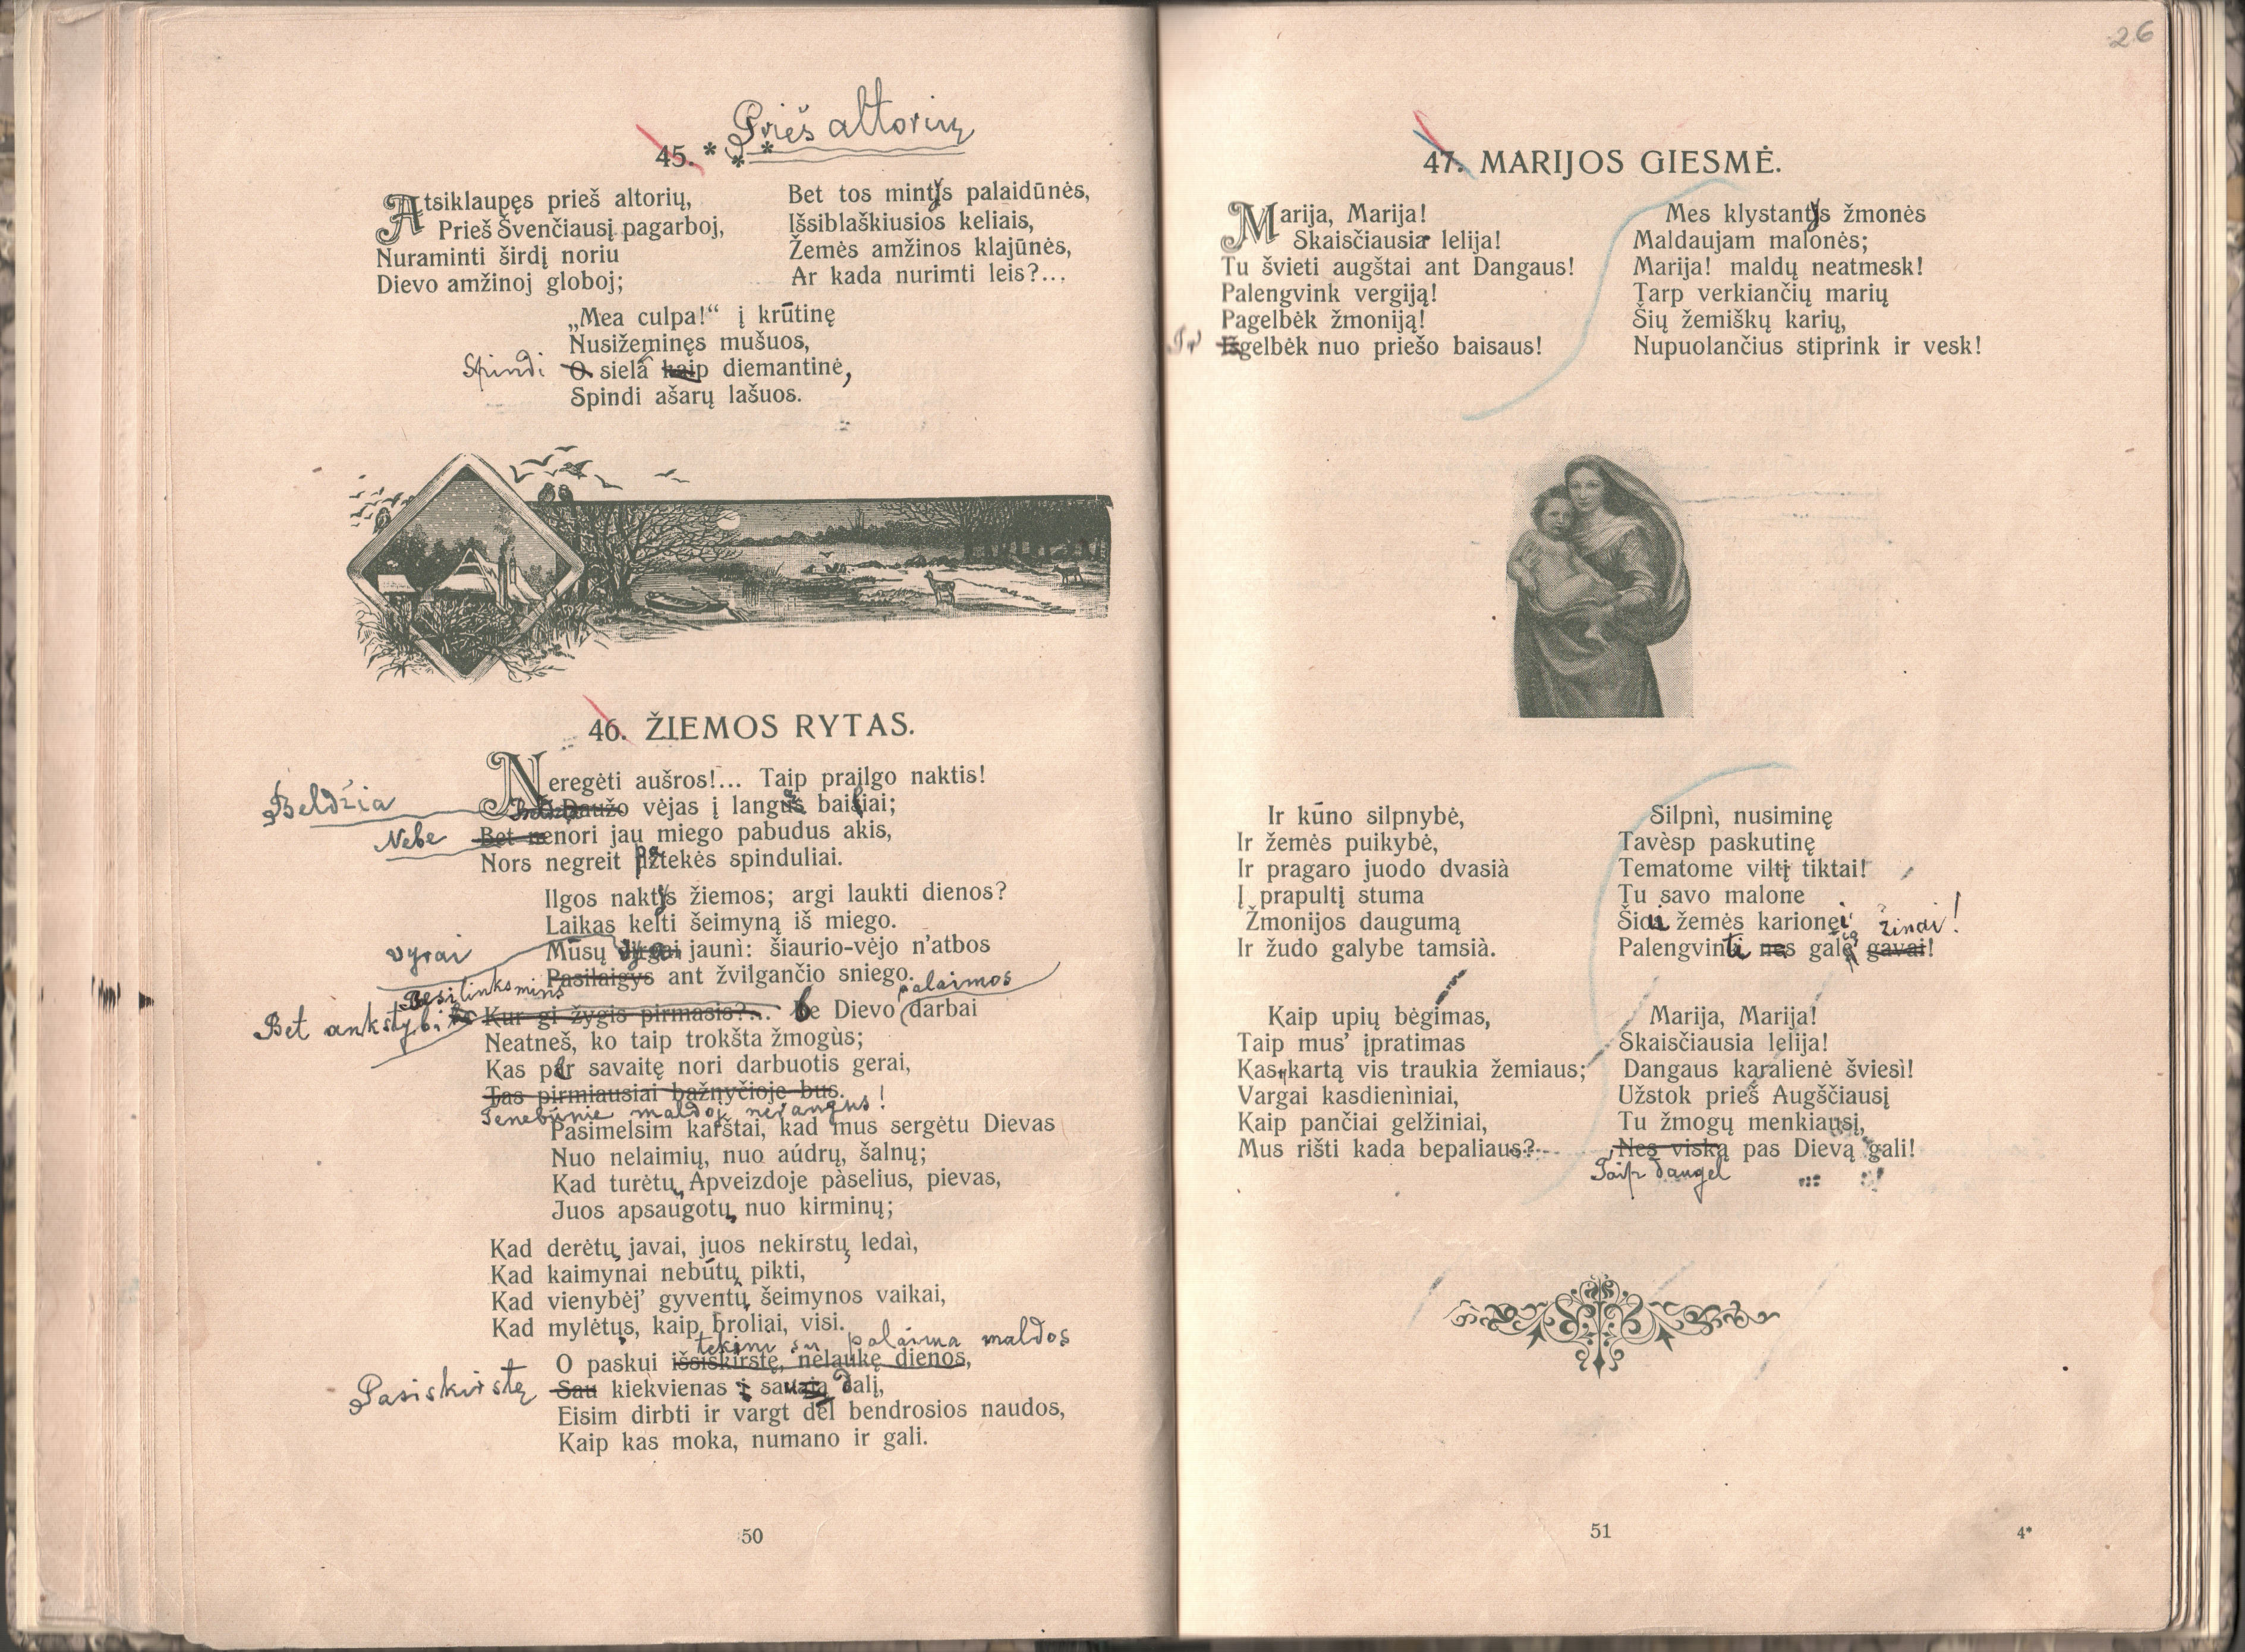 26
Prieš altorių
45. * * *
Atsiklaupęs prieš altorių,
Prieš Švenčiausį pagarboj,
Nuraminti širdį noriu
Dievo amžinoj globoj;
Bet tos mintys palaidūnės,
Išsiblaškiusios keliais,
Žemės amžinos klajūnės,
Ar kada nurimti leis?...
„Mea culpa!“ į krūtinę
Nusižeminęs mušuos,
Spindi O siela kaip diemantinė,
Spindi ašarų lašuos.
46. ŽIEMOS RYTAS.
Neregėti aušros!... Taip prailgo naktis!
Beldžia Daužo vėjas į langus baisiai;
Nebe Bet nenori jau miego pabudus akis,
Nors negreit užtekės spinduliai.
Ilgos naktys žiemos; argi laukti dienos?
Laikas kelti šeimyną iš miego.
vyrai Mūsų jaunì: šiaurio-vėjo n'atbos
Pasilaigys ant žvilgančio sniego.
Besilinksmins palaimos
Bet ankstybi Kur gi žygis pirmasis?... be Dievo darbai
Neatneš, ko taip trokšta žmogùs;
Kas per savaitę nori darbuotis gerai,
Tas pirmiausiai bažnyčioje bus.
Tenebūnie maldoj nerangus!
Pasimelsim karštai, kad mus sergėtu Dievas
Nuo nelaimių, nuo aúdrų, šalnų;
Kad turėtų Apveizdoje pàselius, pievas,
Juos apsaugotų nuo kirminų;
Kad derėtų javai, juos nekirstų ledaì,
Kad kaimynai nebútų pikti,
Kad vienybėj' gyventų šeimynos vaikai,
Kad mylėtųs, kaip broliai, visi.
tekini su palaima maldos
O paskui išsiskirstę, nelaukę dienos,
Pasiskirstę Sau kiekvienas į dalį,
Eisim dirbti ir vargt dėl bendrosios naudos,
Kaip kas moka, numano ir gali.
50
47. MARIJOS GIESMĖ.
Marija, Marija!
Skaisčiausia lelija!
Tu švieti augštai ant Dangaus!
Palengvink vergiją!
Pagelbėk žmoniją!
Ir Išgelbėk nuo priešo baisaus!
Mes klystantys žmonės
Maldaujam malonės;
Marija! maldų neatmesk!
Tarp verkiančių marių
Šių žemiškų karių,
Nupuolančius stiprink ir vesk!
Ir kūno silpnybė,
Ir žemės puikybė,
Ir pragaro juodo dvasià
Į prapultį stuma
Žmonijos daugumą
Ir žudo galybe tamsià.
Silpnì, nusiminę
Tavèsp paskutinę
Tematome viltį tiktai!
Tu savo malone
Šioi žemės karionei žinai!
Palengvinti nes galę gavai!
Kaip upių bėgimas,
Taip mus' įpratimas
Kas kartą vis traukia žemiaus;
Vargai kasdieniniai,
Kaip pančiai gelžiniai,
Mus rišti kada bepaliaus?...
Marija, Marija!
Skaisčiausia lelija!
Dangaus karalienė šviesì!
Užstok prieš Augščiausį
Tu žmogų menkiausį,
Nes viską pas Dievą gali!
Taip daugel
51
4*